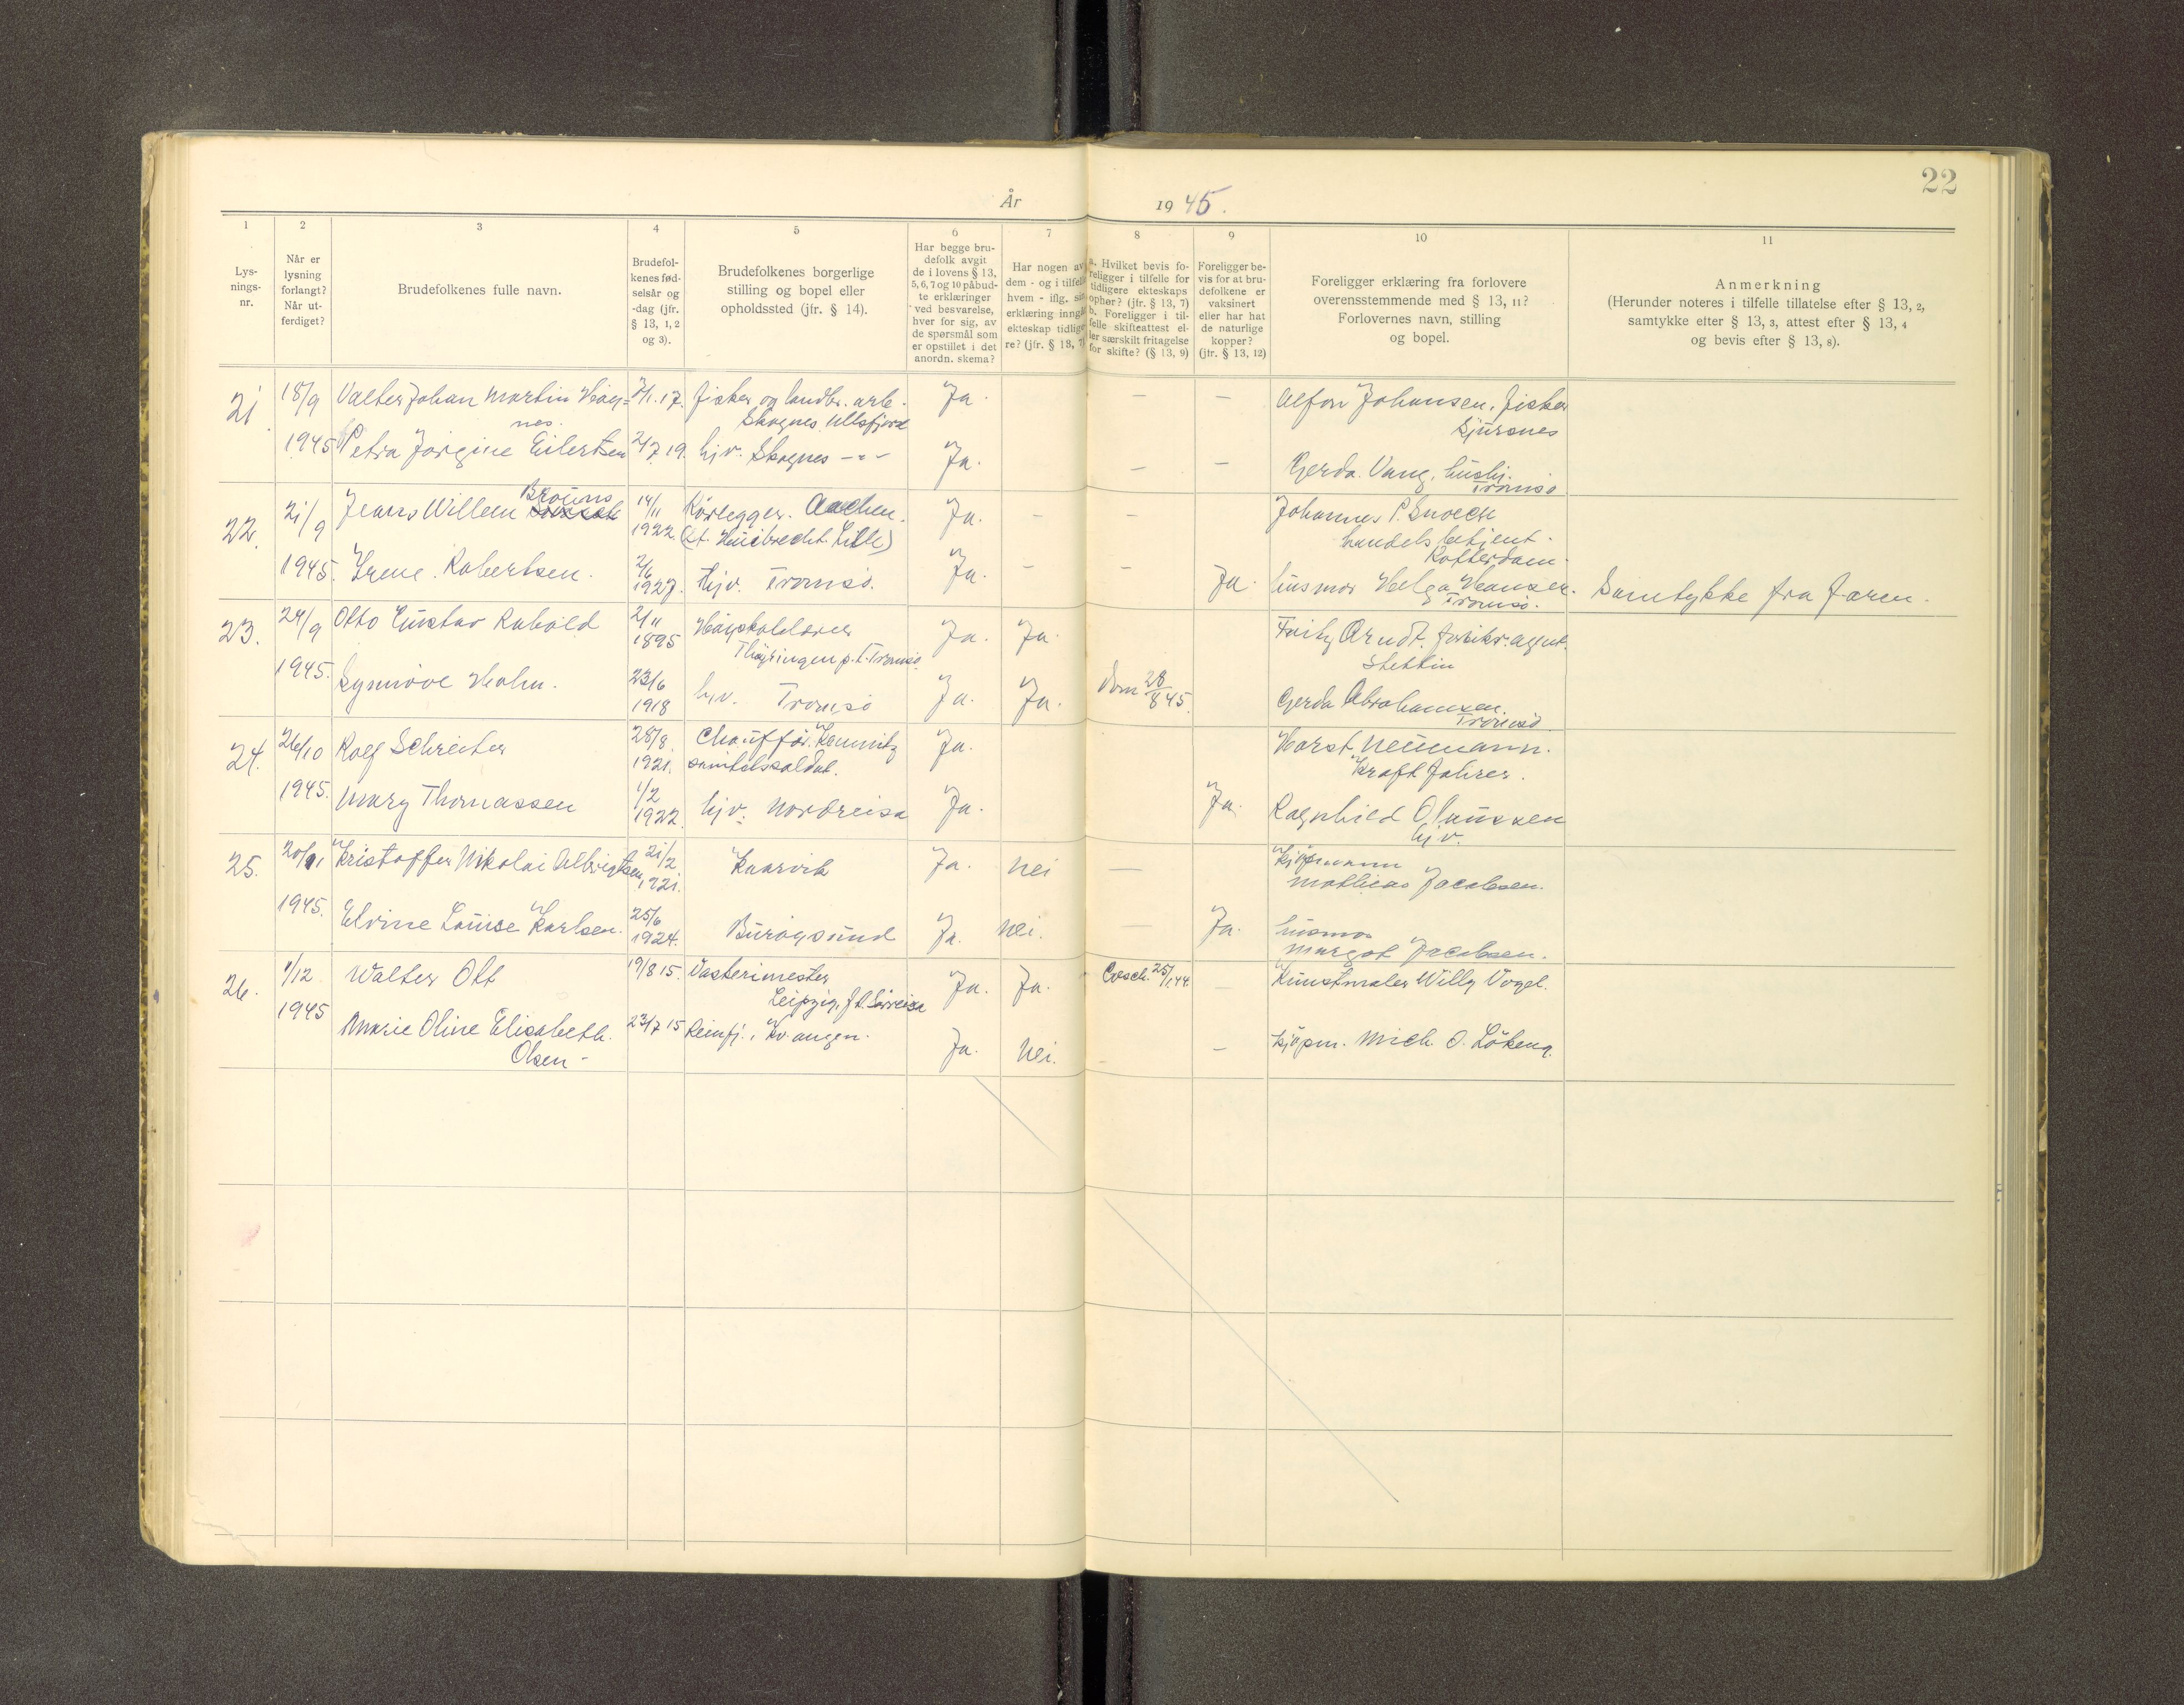 22
År 1945.
1 2 3 4 5 6 7 8 9 10 11
Lys-
nings-
nr.
Når er
lysning
forlangt?
Når ut-
ferdiget?
Brudefolkenes fulle navn.
Brudefol-
kenes fød-
selsår og
-dag (jfr.
§ 13, 1, 2
og 3).
Brudefolkenes borgerlige
stilling og bopel eller
opholdssted (jfr. § 14).
Har begge bru-
defolk avgit
de i lovens § 13,
5, 6, 7 og 10 påbud-
te erklæringer
ved besvarelse,
hver for sig, av
de spørsmål som
er opstillet i det
anordn. skema?
Har nogen av
dem - og i tilfelle
hvem - iflg. sin
erklæring inngå
ekteskap tidlige-
re? (jfr. § 13, 7)
a. Hvilket bevis fo-
religger i tilfelle for
tidligere ekteskaps
ophør? (jfr. § 13, 7)
b. Foreligger i til-
felle skifteattest el-
ler særskilt fritagelse
for skifte? (§ 13, 9)
Foreligger be-
vis for at bru-
defolkene er
vaksinert
eller har hat
de naturlige
kopper?
(jfr. § 13, 12)
Foreligger erklæring fra forlovere
overensstemmende med § 13, 11?
Forlovernes navn, stilling
og bopel.
Anmerkning
(Herunder noteres i tilfelle tillatelse efter § 13, 2,
samtykke efter § 13, 3, attest efter § 13, 4
og bevis efter § 13, 8).
21. 18/9 Valter Johan Martin Haug= fisker og landbr. arb. Ja. — — Alfon Johansen, fisker
nes. Skognes, Ullsfjord Sjursnes
1945 Petra Jørgine Eilertsen 2/7 19. hjv. Skognes -"- Ja. — — Gerda Vang, hushj.
Tromsø
22. 21/9 Jeans Willem Brouns 14/11 1922. Rørlegger. Aachen. Ja. - - Johannes P. Snoeck
handelsbetjent.
Rotterdam.
1945. Irene Robertsen. 2/6 1927. Hjv. Tromsø. Ja. - - Ja. husmor Helga Hansen. Samtykke fra faren.
Tromsø.
23. 24/9 Otto Gustav Rabold 2/11 1895 Ja. Ja. Fritz Arndt. agent.
Thüringen p.t. Tromsø. Stettin
1945. Synnøve Holm. 23/6 1918 hjv. Tromsø Ja. Ja. dom 28/8 45. Gerda Abrahamsen.
Tromsø
24. 26/10 Rolf Schreiter 28/8 1921. Chauffør. Kemnitz Ja. Horst Neumann.
sanitetssoldat. Kraft Fahrer.
1945. Mary Thomassen 1/2 1922. hjv. Nordreisa Ja. Ja. Ragnhild Olaussen
hjv.
25. 20/11 Kristoffer Nikolai Albrigtsen 21/2 1921. Kaarvik Ja. Nei — Kjøpmann
Mathias Jacobsen.
1945. Elvine Louise Karlsen. 25/6 1924. Burøysund Ja. Nei. — Ja. husmor
Margot Jacobsen.
26. 1/12 Walter Ott 19/8 15. Leipzig, f.t. Sørreisa Ja. Ja. — Kunstmaler Willy Vogel.
1945 Marie Oline Elisabeth 23/7 15 Reinfj., Kv.angen. Ja. Nei. - — Kjøpm. Mich. O. Løkeng.
Olsen -